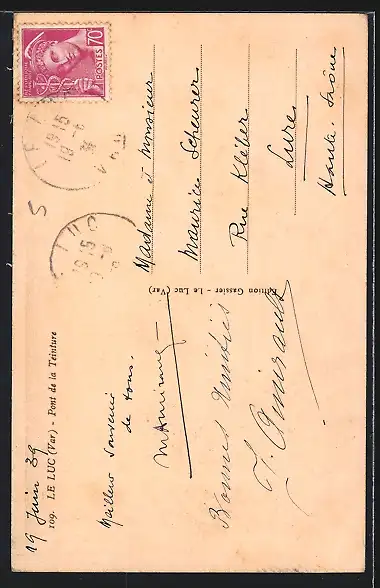 19 Juin 39
109. LE LUC (Var) - Pont de la Teinture
Meilleur souvenir
de tous.
Bonnes Amitiés
Édition Gassier - Le Luc (Var)
Madame et Monsieur
Maurice Scheurer
Rue Kléber
Lure
Haute-Saône
70c
POSTES
LE LUC
5